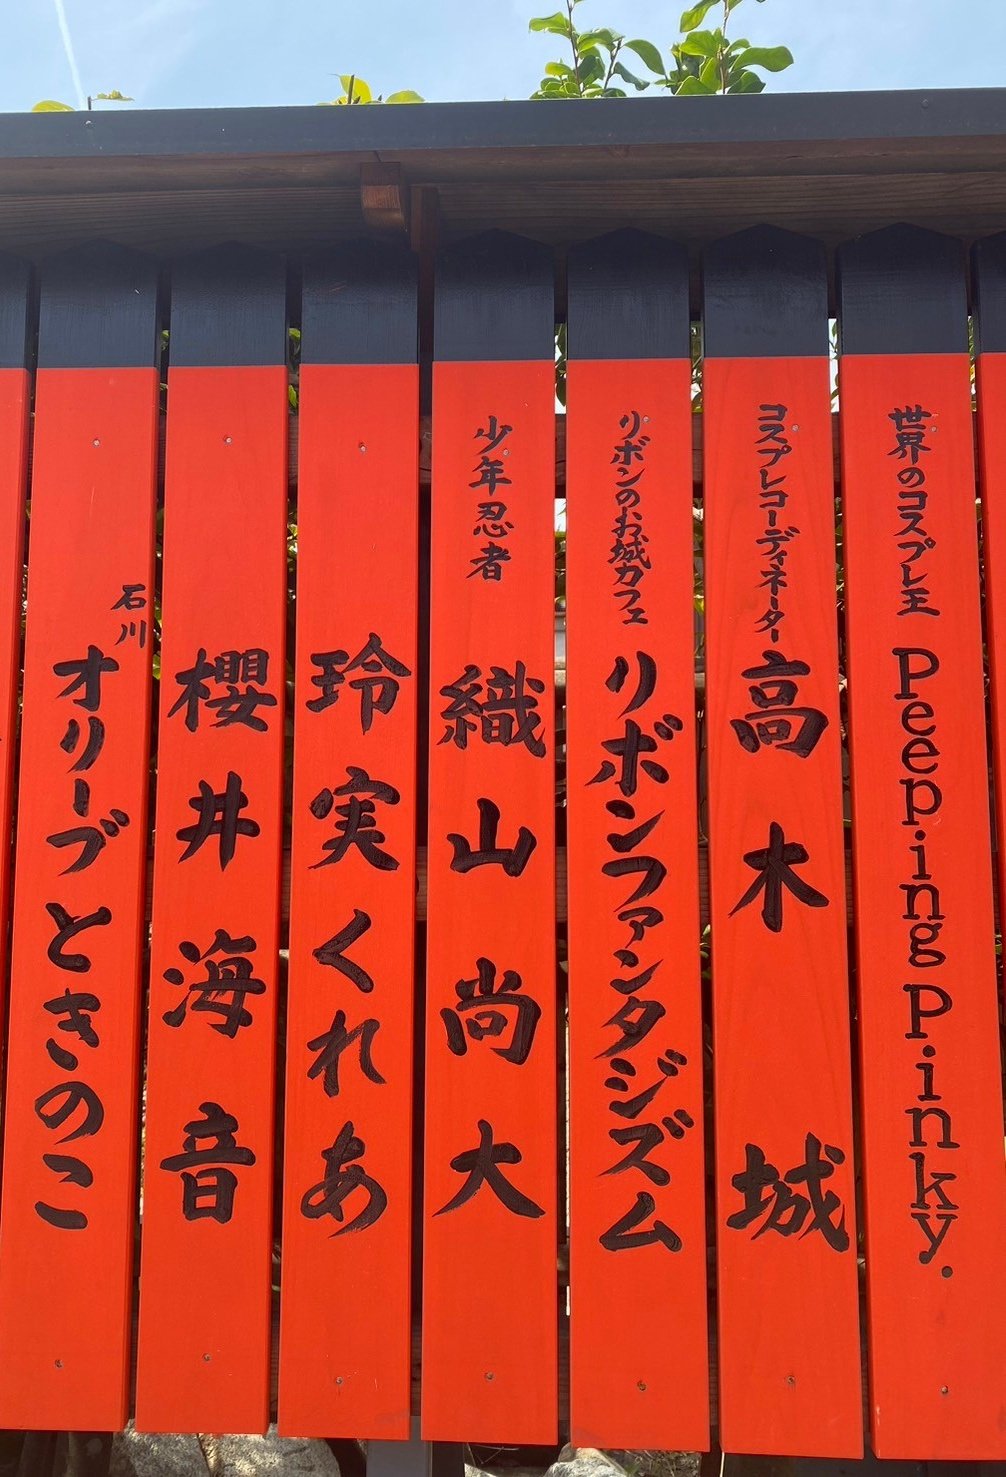 世界のコスプレ王
Peeping Pinky.
コスプレコーディネーター
高木城
リボンのお城カフェ
リボンファンタジズム
少年忍者
織山尚大
玲実くれあ
櫻井海音
石川
オリーブときのこ